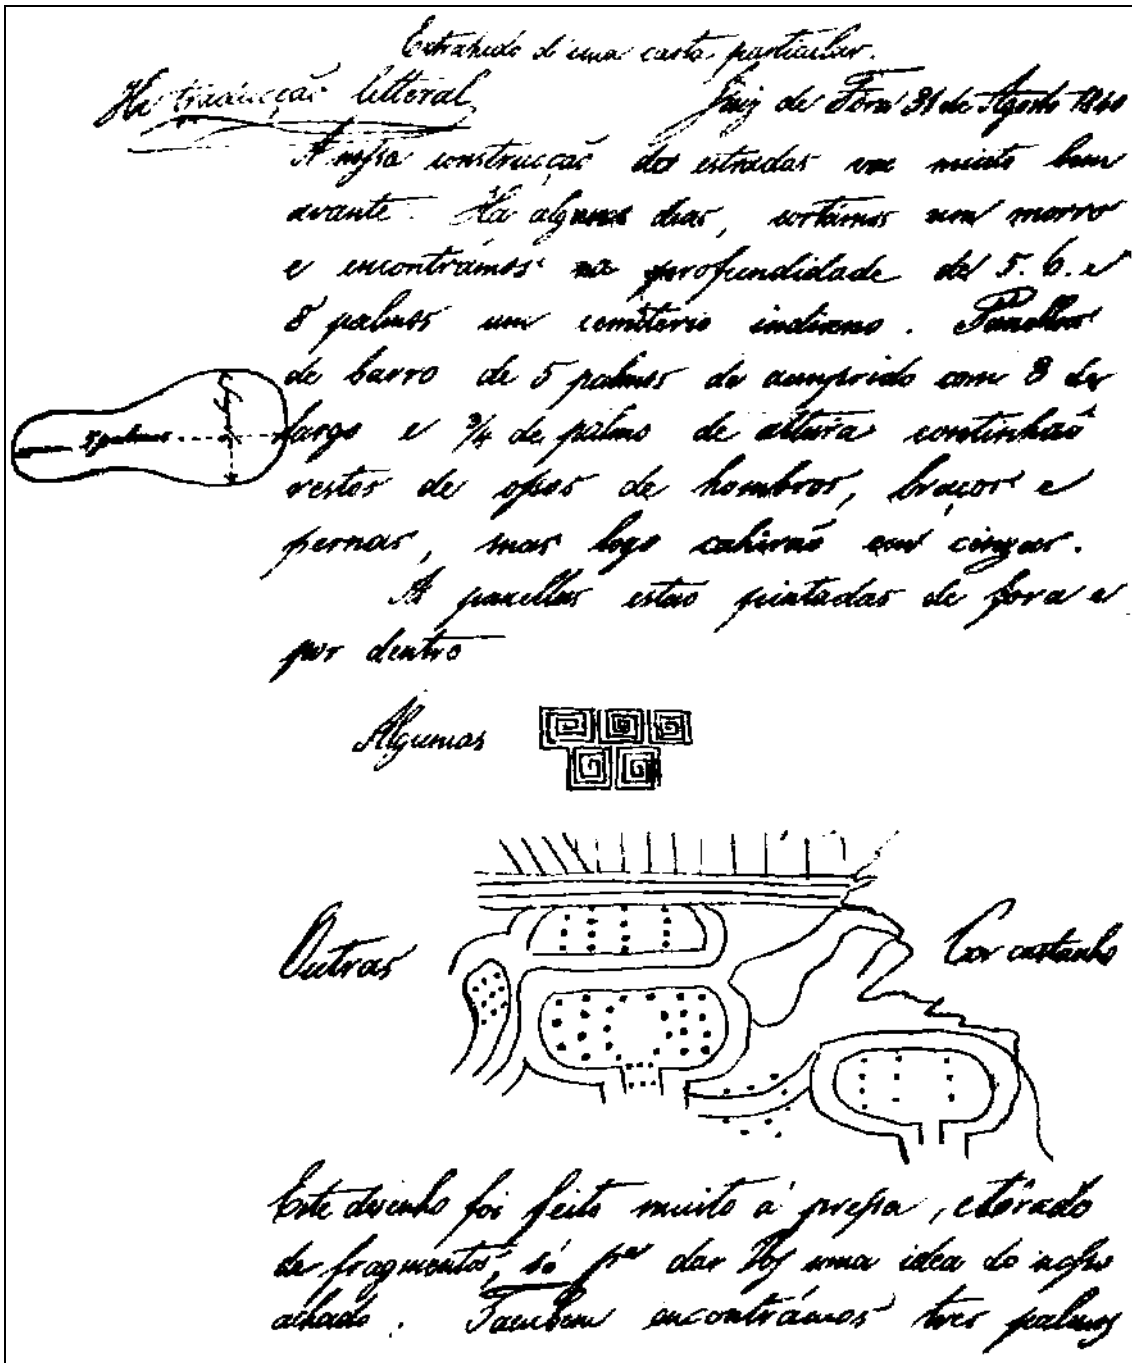 Extrahido d'uma carta particular.
He traducção litteral
Juiz de Fora 31 de Agosto 1860
A nossa construcção das estradas vae muito bem
avante. Ha algums dias, cortámos um morro
e encontrámos na profundidade de 5. 6. e
8 palmos um cemiterio indiano. Panellas
de barro de 5 palmos de comprido com 3 de
largo e 3/4 de palmo de altura continhão
restos de ossos de hombros, braços e
pernas, mas logo cahirão em cinzas.
5 palmos
As panellas estão pintadas de fora e
por dentro
Algumas
Outras
Cor castanho
Este desenho foi feito muito á pressa, e tirado
de fragmentos, só pª dar Vos uma idea do nosso
achado. Tambem encontrámos tres palmos